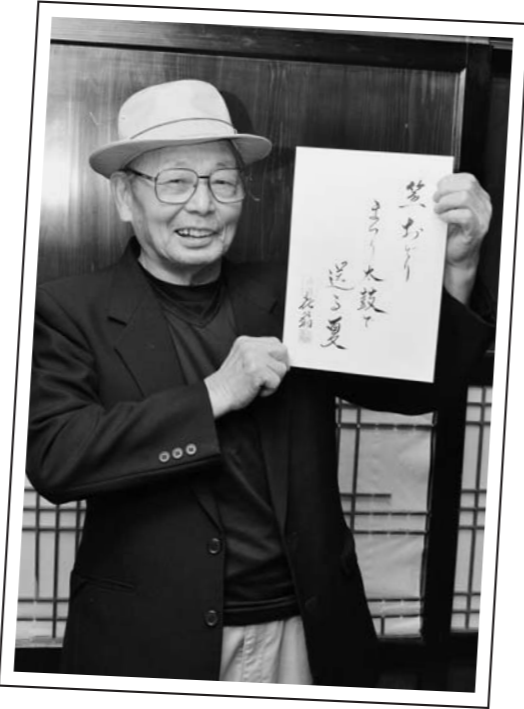 笠おどり
まつり太鼓で
送る夏